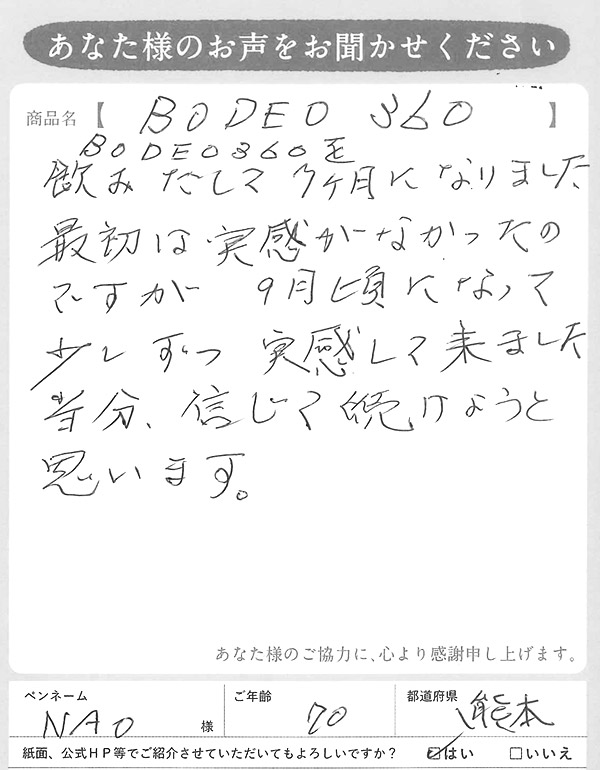 あなた様のお声をお聞かせください
商品名【 BODEO 360 】
BODEO360を
飲みだして3ヶ月になりました
最初は実感がなかったの
ですが 9月頃になって
少しずつ実感して来ました
当分、信じて続けようと
思います。
あなた様のご協力に、心より感謝申し上げます。
ペンネーム NAO 様 ご年齢 70 都道府県 熊本
紙面、公式HP等でご紹介させていただいてもよろしいですか? ☑はい □いいえ